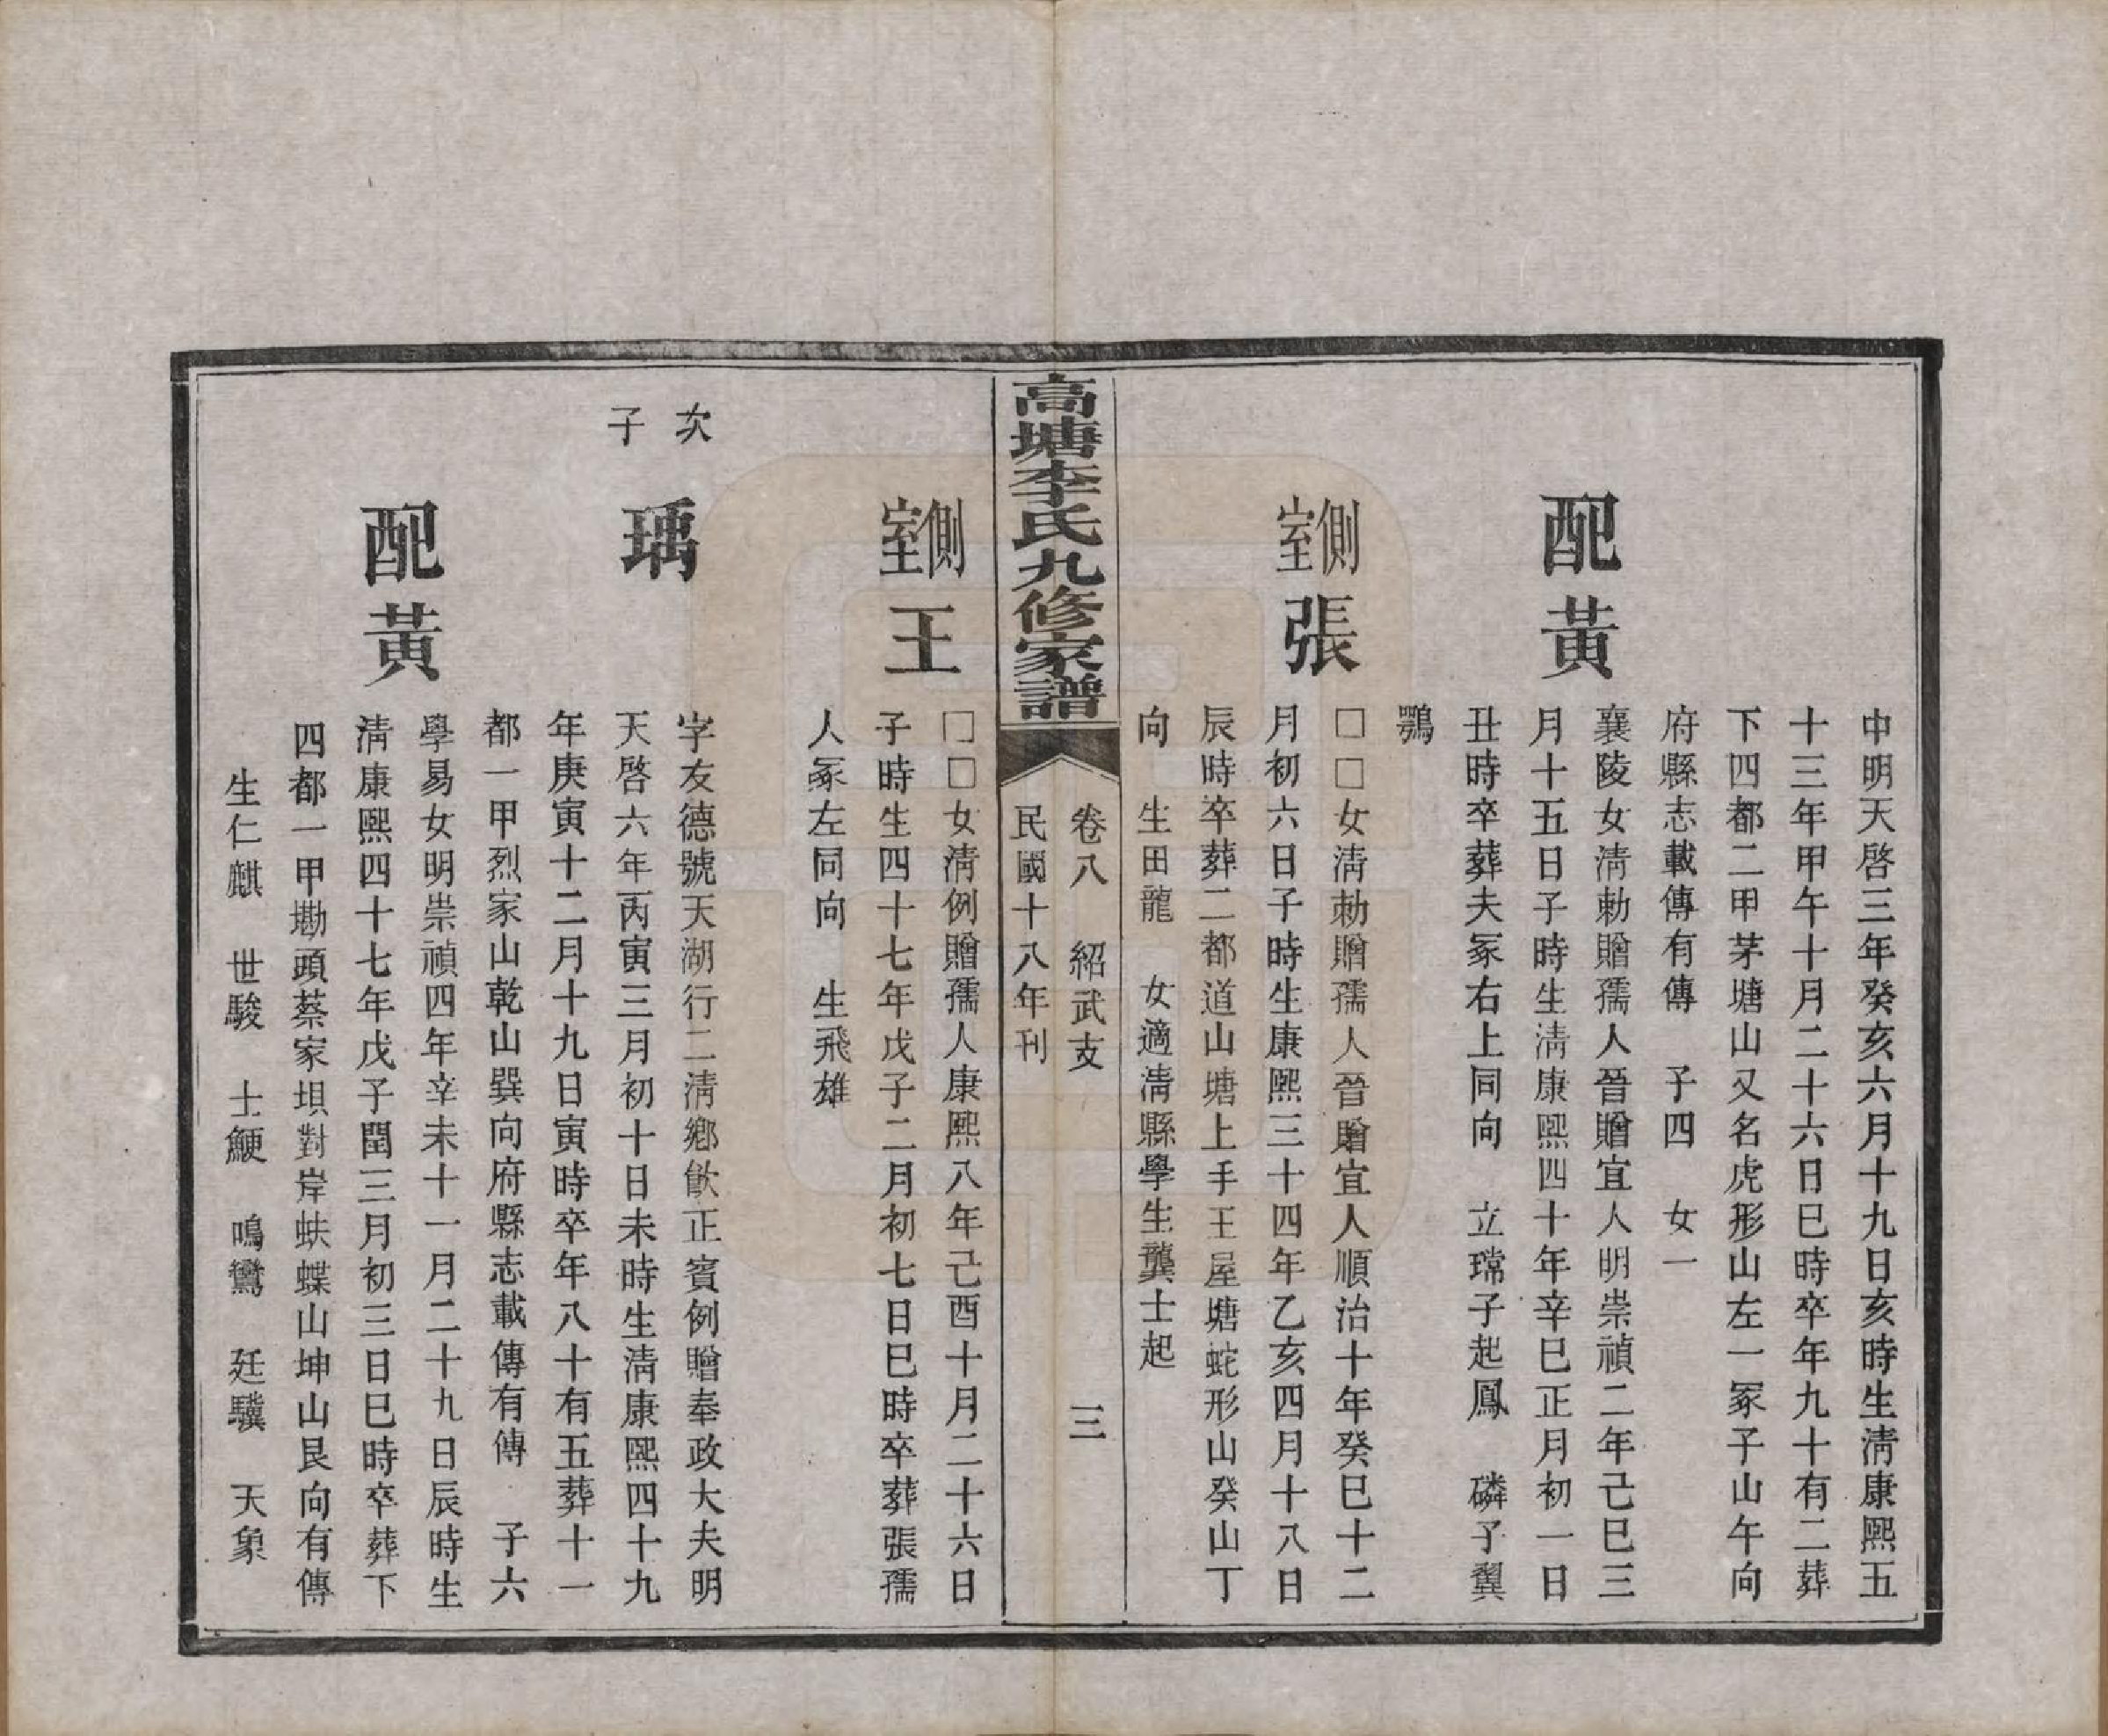 申明天啓三年癸亥六月十九日亥時生淸康熙五
十三年甲午十月二十六日巳時卒年九十有二葬
下四都二甲茅塘山又名虎形山左一冢子山午向
府縣志載傳有傳　子四　女一
配黃
襄陵女淸勅贈孺人晉贈宜人明崇禎二年己巳三
月十五日子時生淸康熙四十年辛巳正月初一日
丑時卒葬夫冢右上同向　立瑺子起鳳　磷子翼
鶚
側室張
□□女淸勅贈孺人晉贈宜人順治十年癸巳十二
月初六日子時生康熙三十四年乙亥四月十八日
辰時卒葬二都道山塘上手王屋塘蛇形山癸山丁
向　生田龍　女適淸縣學生龔士起
高塘李氏九修家譜
卷八　紹武支　三
民國十八年刊
側室王
□□女淸例贈孺人康熙八年己酉十月二十六日
子時生四十七年戊子二月初七日巳時卒葬張孺
人冢左同向　生飛雄
次子
瑀
字友德號天湖行二淸鄉飮正賓例贈奉政大夫明
天啓六年丙寅三月初十日未時生淸康熙四十九
年庚寅十二月十九日寅時卒年八十有五葬十一
都一甲烈家山乾山巽向府縣志載傳有傳　子六
配黃
學易女明崇禎四年辛未十一月二十九日辰時生
淸康熙四十七年戊子閏三月初三日巳時卒葬下
四都一甲墈頭蔡家垻對岸蚨蝶山坤山艮向有傳
生仁麒　世駿　士鯁　鳴鸞　廷驥　天象